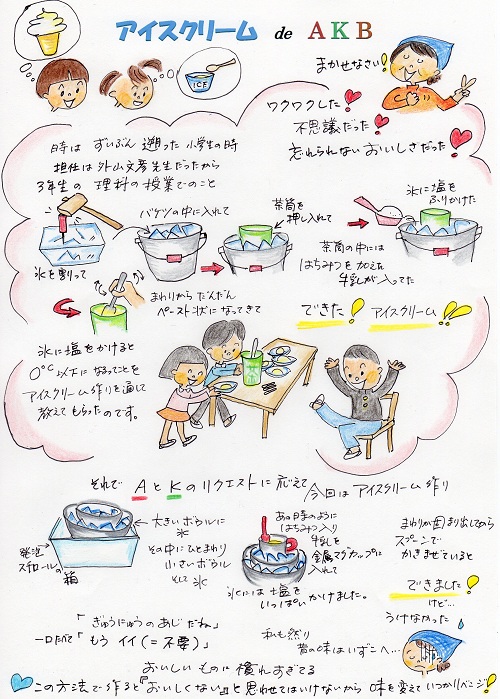 アイスクリーム de AKB
まかせなさい!
ICE
ワクワクした
不思議だった
忘れられないおいしさだった
時は ずいぶん 遡った 小学生の時
担任は 外山文彦先生だったから
3年生の 理科の授業でのこと
氷を割って
バケツの中に入れて
茶筒を
押し入れて
氷に塩を
ふりかけた
茶筒の中には
はちみつを加えた
牛乳が入ってた
まわりからだんだん
ペースト状になってきて
できた! アイスクリーム!!
氷に塩をかけると
0°C以下になるってことを
アイスクリーム作りを通して
教えてもらったのです。
それで AとKのリクエストに応えて 今日はアイスクリーム作り
発泡
スチロールの
箱
大きいボウルに
氷
その中にひとまわり
小さいボウル
そして 氷
あの時のように
はちみつ入り
牛乳を
金属マグカップに
入れて
氷には塩を
いっぱいかけました。
まわりが固まり出してから
スプーンで
かきまぜていると
できました!
けど…
うけなかった
「ぎゅうにゅうのあじだね」
一口たべて「もうイイ(=不要)」
私も然り
昔の味はいずこへ…
おいしいものに慣れすぎてる
この方法で作ると『おいしくない』と思わせてはいけないから 味を変えていつかリベンジ